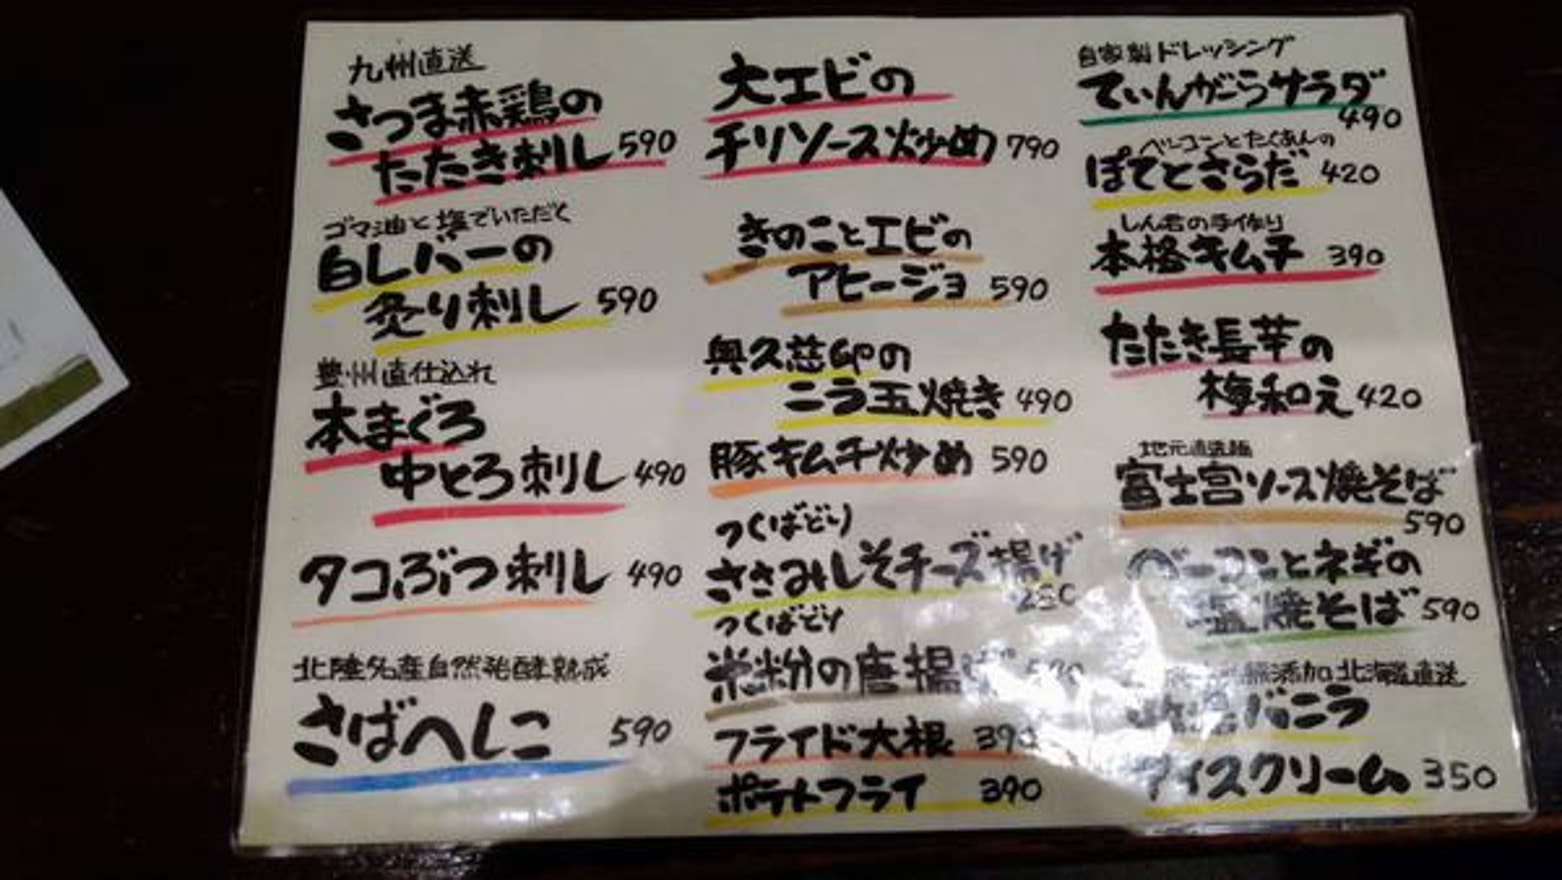 九州直送
さつま赤鶏の
たたき刺し 590
ゴマ油と塩でいただく
白レバーの
炙り刺し 590
豊州直仕込れ
本まぐろ
中とろ刺し 490
タコぶつ刺し 490
北陸名産自然発酵熟成
さばへしこ 590
大エビの
チリソース炒め 790
きのことエビの
アヒージョ 590
奥久慈卵の
ニラ玉焼き 490
豚キムチ炒め 590
つくばどり
ささみしそチーズ揚げ
つくばどり
米粉の唐揚げ
フライド大根 390
ポテトフライ 390
自家製ドレッシング
てぃんがらサラダ
490
ベーコンとたくあんの
ぽてとさらだ 420
しん君の手作り
本格キムチ 390
たたき長芋の
梅和え 420
地元直送麺
富士宮ソース焼そば
590
ベーコンとネギの
塩焼そば 590
無添加北海道直送
バニラ
アイスクリーム 350